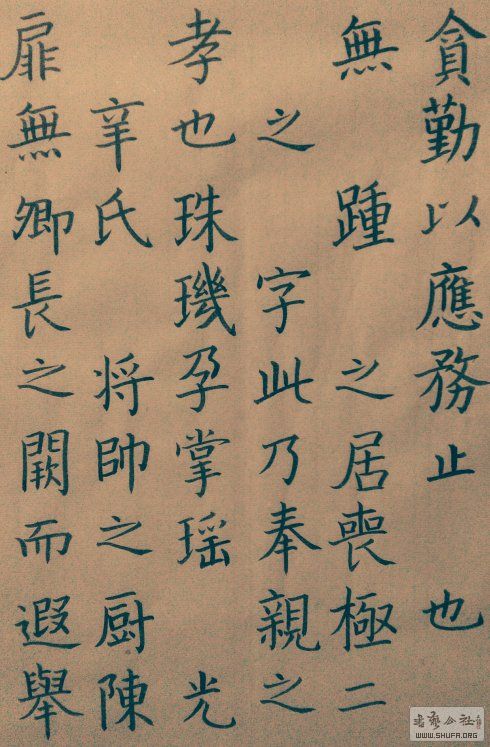 貪勤以應務止也
無踵之居喪極二
之字此乃奉親之
孝也珠璣孕掌瑶光
辛氏將帥之厨陳
扉無卿長之闕而遐舉
WWW.SHUFA.ORG